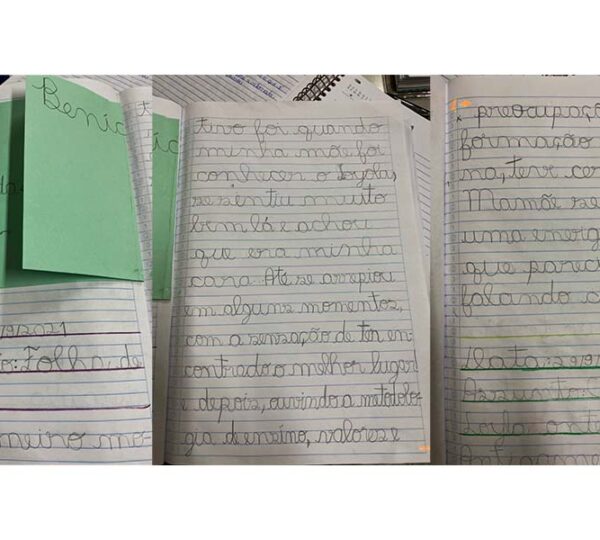 Benic
/9/2021
o: Folha de
meiro mo-
tivo foi quando
minha mãe foi
conhecer o Loyola,
se sentiu muito
bem lá e achou
que era minha
cara. Até se arrepiou
em alguns momentos,
com a sensação de ter en-
contrado o melhor lugar
e depois, ouvindo a metodolo-
gia de ensino, valores e
preocupaçã
formação
na, teve cer
Mamãe se
uma energ
que pareci
falando c
Data: 29/9/
Assunto: